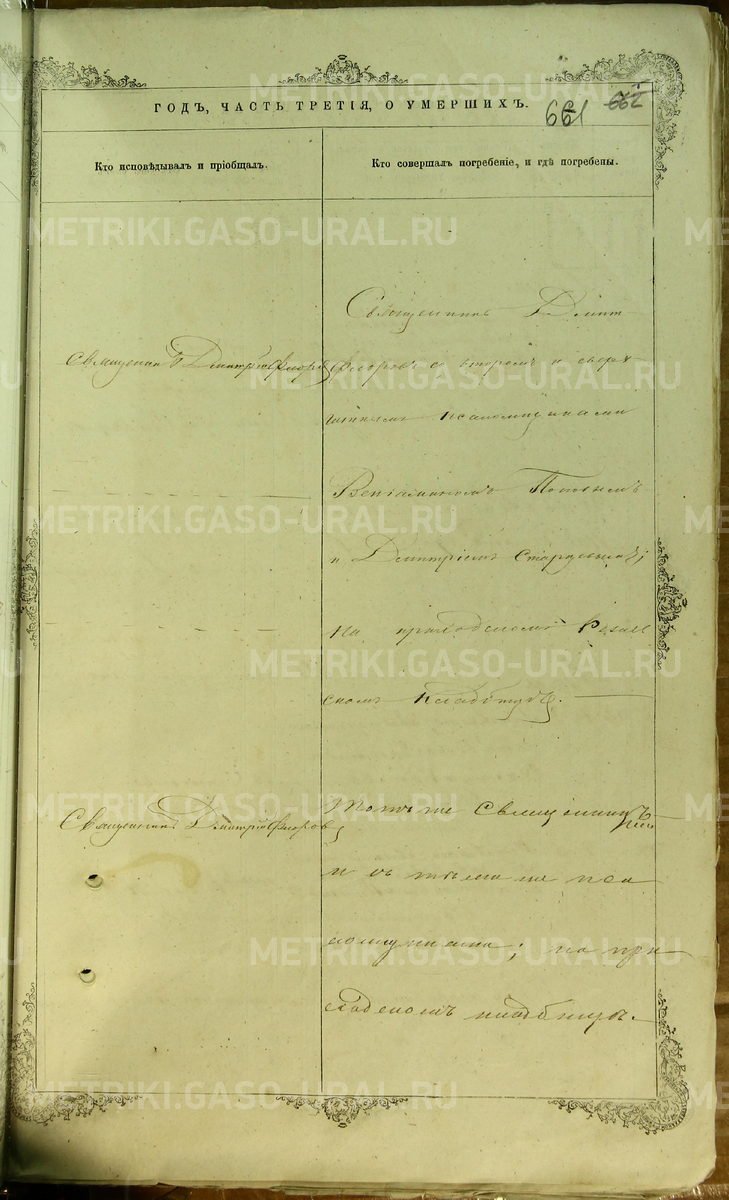 ГОДЪ, ЧАСТЬ ТРЕТІЯ, О УМЕРШИХЪ.
661 662
Кто исповѣдывалъ и пріобщалъ.
Кто совершалъ погребеніе, и гдѣ погребены.
Священникъ Дмитрій Флоровъ
Священникъ Дмит
Флоровъ съ вторымъ и сверх
штатнымъ псаломщиками
Веніаминомъ Поповымъ
и Дмитріемъ
на приходскомъ
скомъ кладбищѣ.
Священникъ Дмитрій Флоровъ
Тотъ же священникъ
и съ тѣми же пса
ломщиками; на при
ходскомъ кладбищѣ.
METRIKI.GASO-URAL.RU